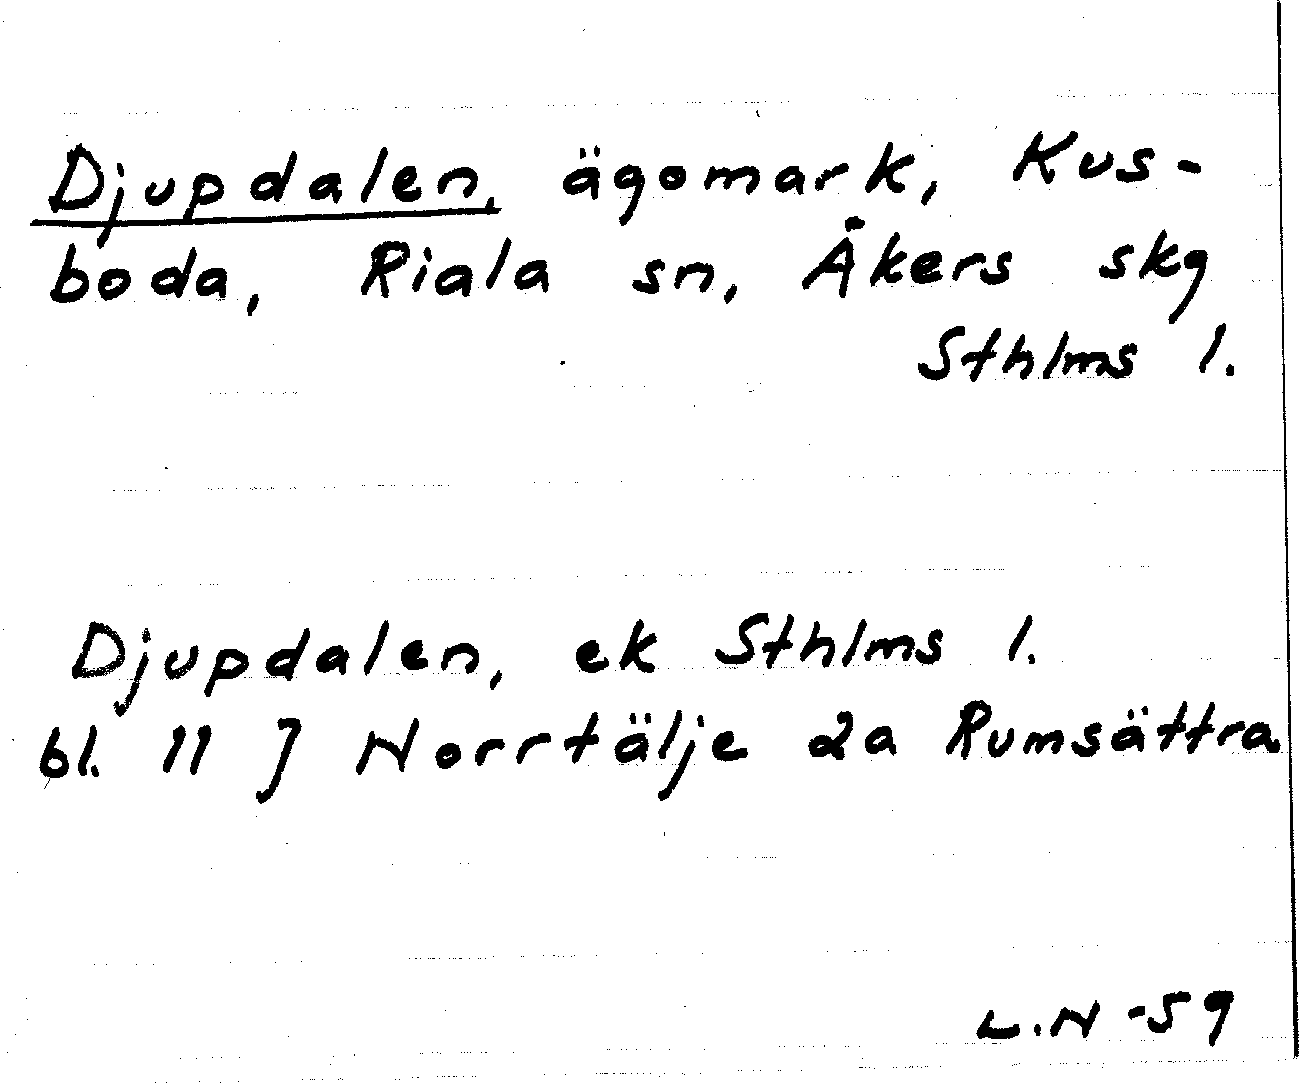 Djupdalen, ägomark, Kus-
boda, Riala sn, Åkers skg
Sthlms l.
Djupdalen, ek Sthlms l.
bl. 11 J Norrtälje 2a Rumsättra
L.N -59